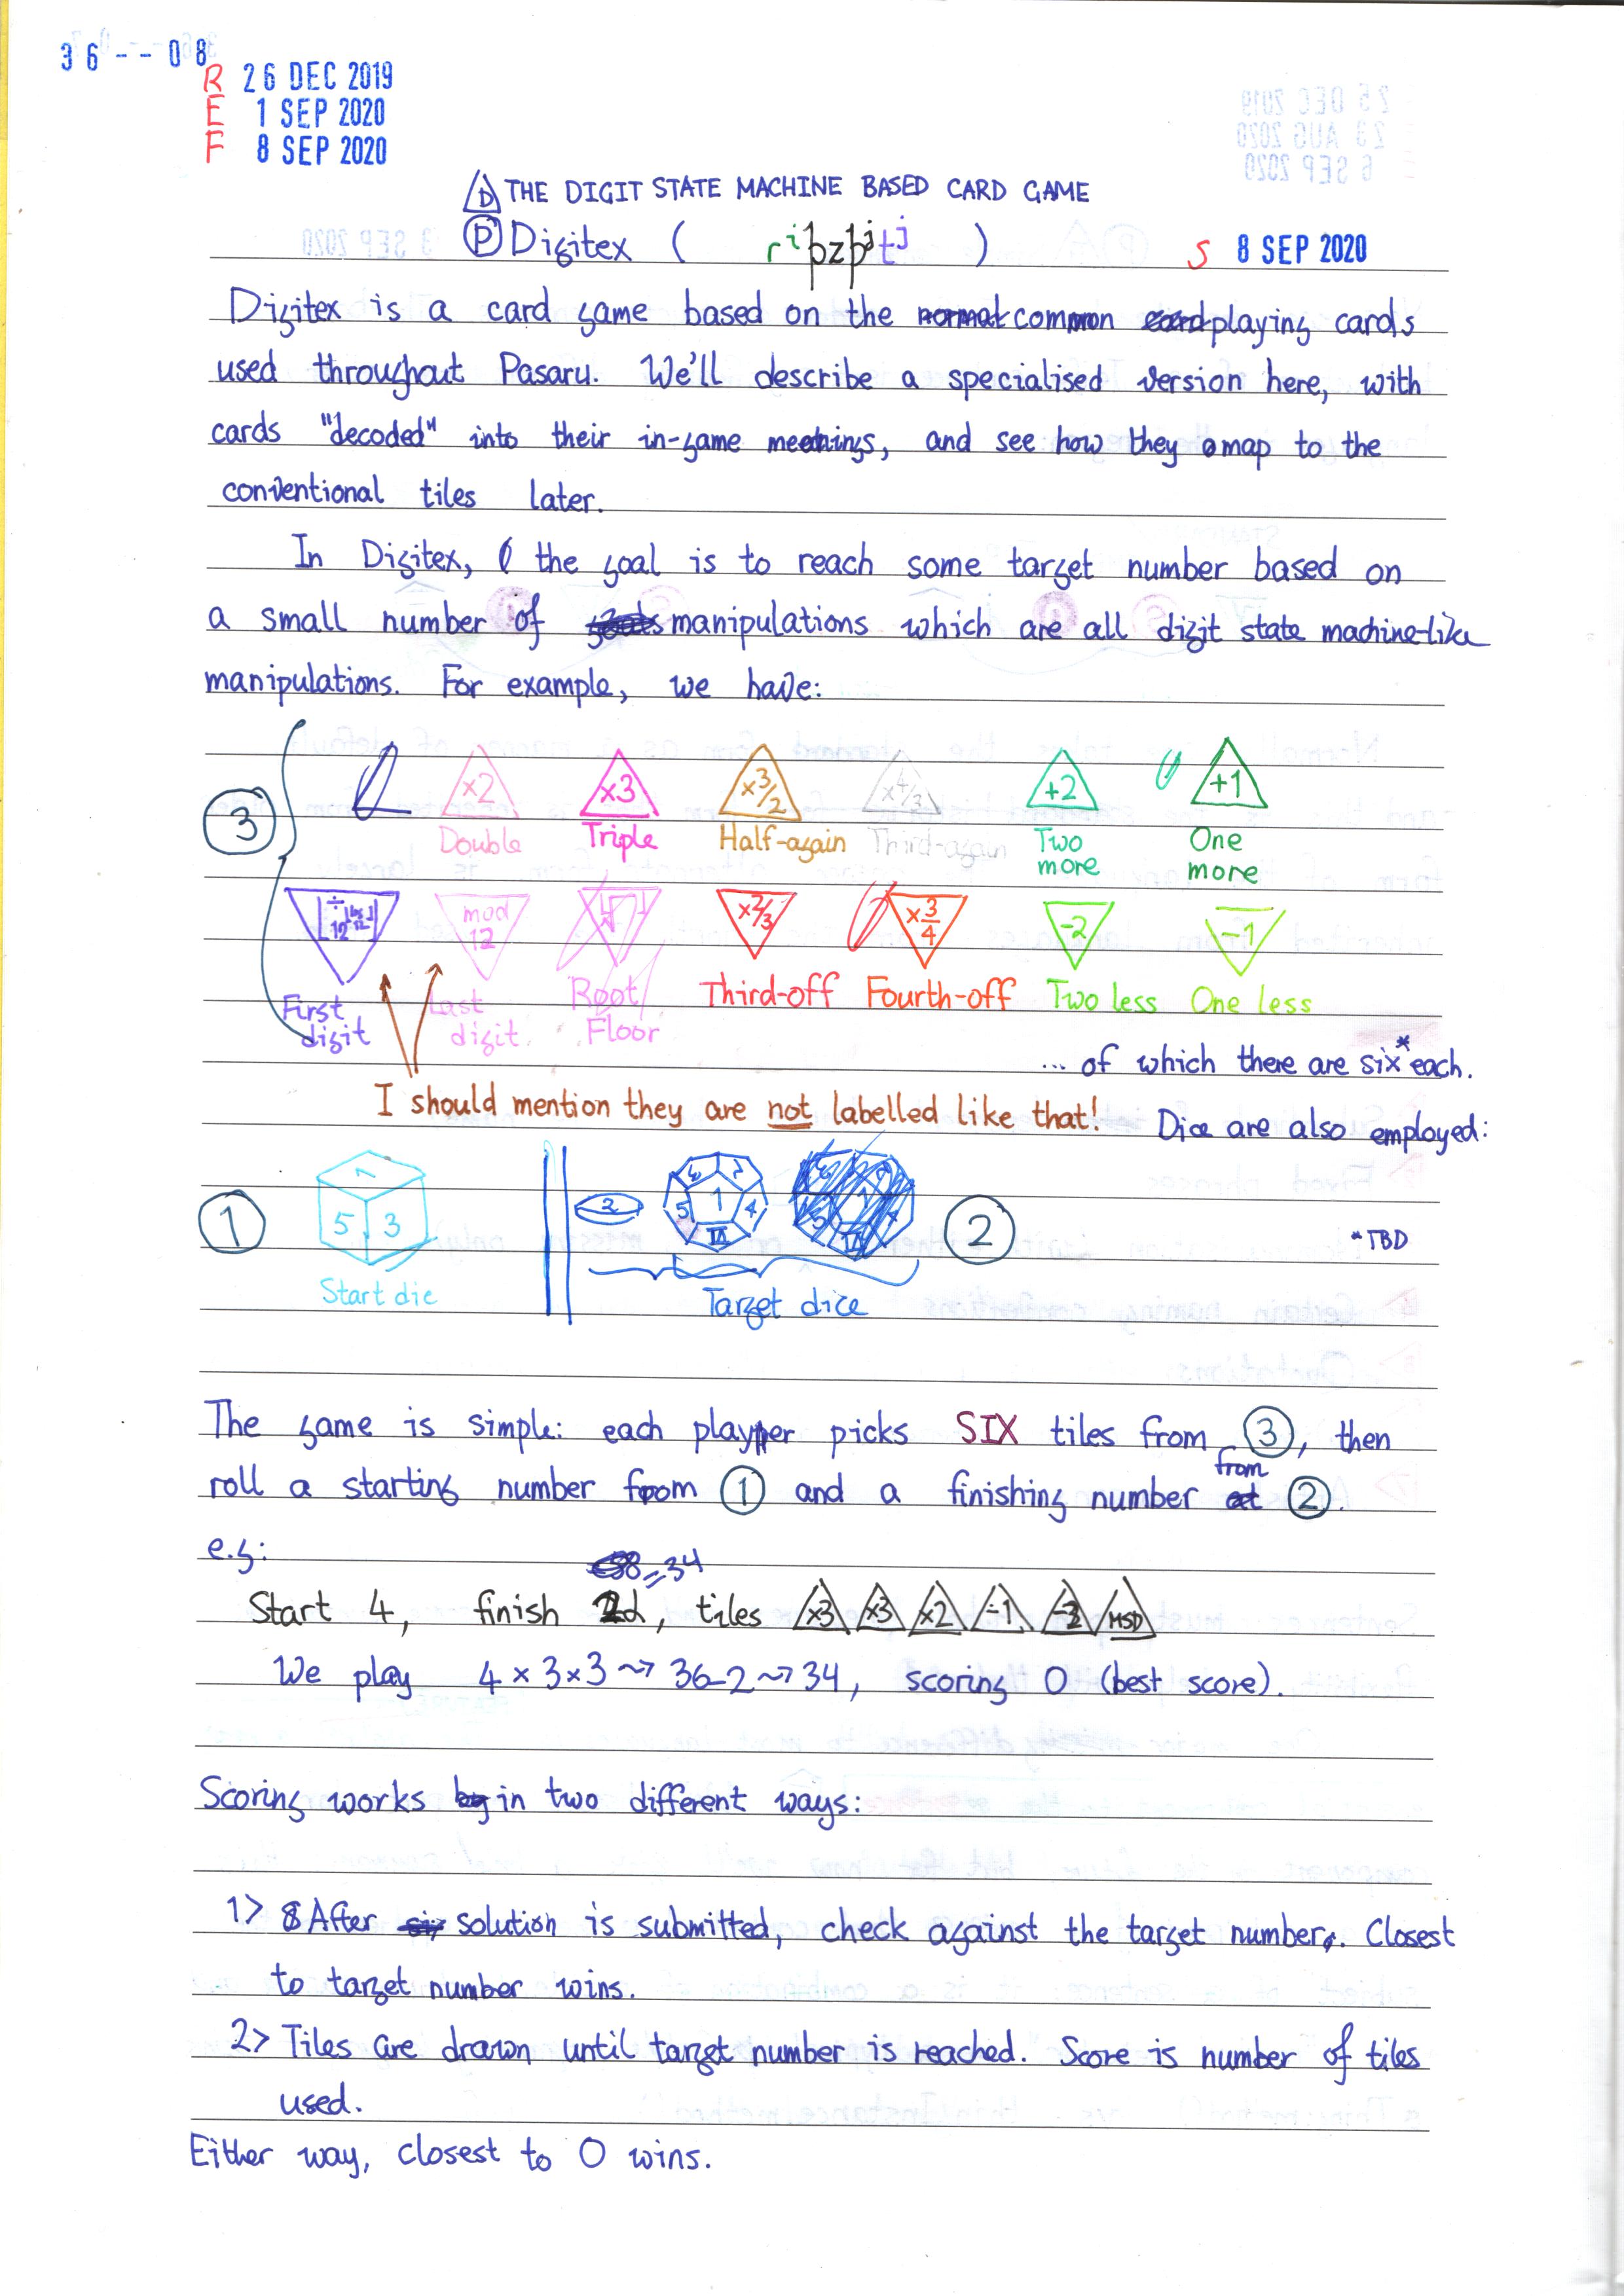 36--08
R 26 DEC 2019
E 1 SEP 2020
F 8 SEP 2020
D THE DIGIT STATE MACHINE BASED CARD GAME
P Digitex ( )
S 8 SEP 2020
Digitex is a card game based on the normal common card playing cards
used throughout Pasaru. We'll describe a specialised version here, with
cards "decoded" into their in-game meanings, and see how they map to the
conventional tiles later.
In Digitex, the goal is to reach some target number based on
a small number of manipulations which are all digit state machine-like
manipulations. For example, we have:
3
×2 ×3 ×3/2 ×4/3 +2 +1
Double Triple Half-again Third-again Two more One more
mod 12 ×2/3 ×3/4 -2 -1
First digit Last digit Root Floor Third-off Fourth-off Two less One less
... of which there are six* each.
I should mention they are not labelled like that! Dice are also employed:
1 1 5 3 2 1 4 5 2
*TBD
Start die Target dice
The game is simple: each player picks SIX tiles from 3, then
roll a starting number from 1 and a finishing number from 2.
e.g:
=34
Start 4, finish 2d, tiles ×3 ×3 ×2 -1 -2 MSD
We play 4 × 3 × 3 ⤳ 36-2 ⤳ 34, scoring 0 (best score).
Scoring works in two different ways:
1> After solution is submitted, check against the target number. Closest
to target number wins.
2> Tiles are drawn until target number is reached. Score is number of tiles
used.
Either way, closest to 0 wins.